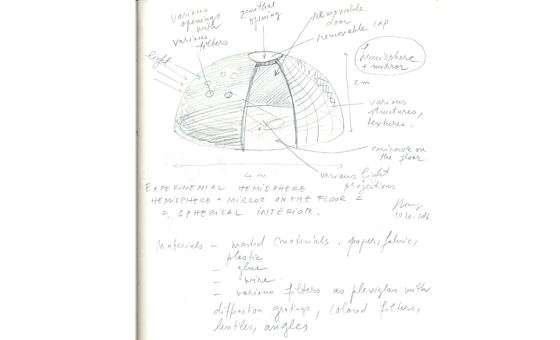 various
openings
with
various
filters
zenithal
opening
removable
door
removable cap
hemisphere
+ mirror
light
2 m
various
structures,
textures.
mirror on
the floor
various light
projections
4 m
EXPERIMENTAL HEMISPHERE
HEMISPHERE + MIRROR ON THE FLOOR =
= SPHERICAL INTERIOR.
Materials - wasted materials. paper, fabric,
plastic
- glue
- wire
- various filters as plexiglas with
diffraction gratings, colored filters,
lentiles, angles